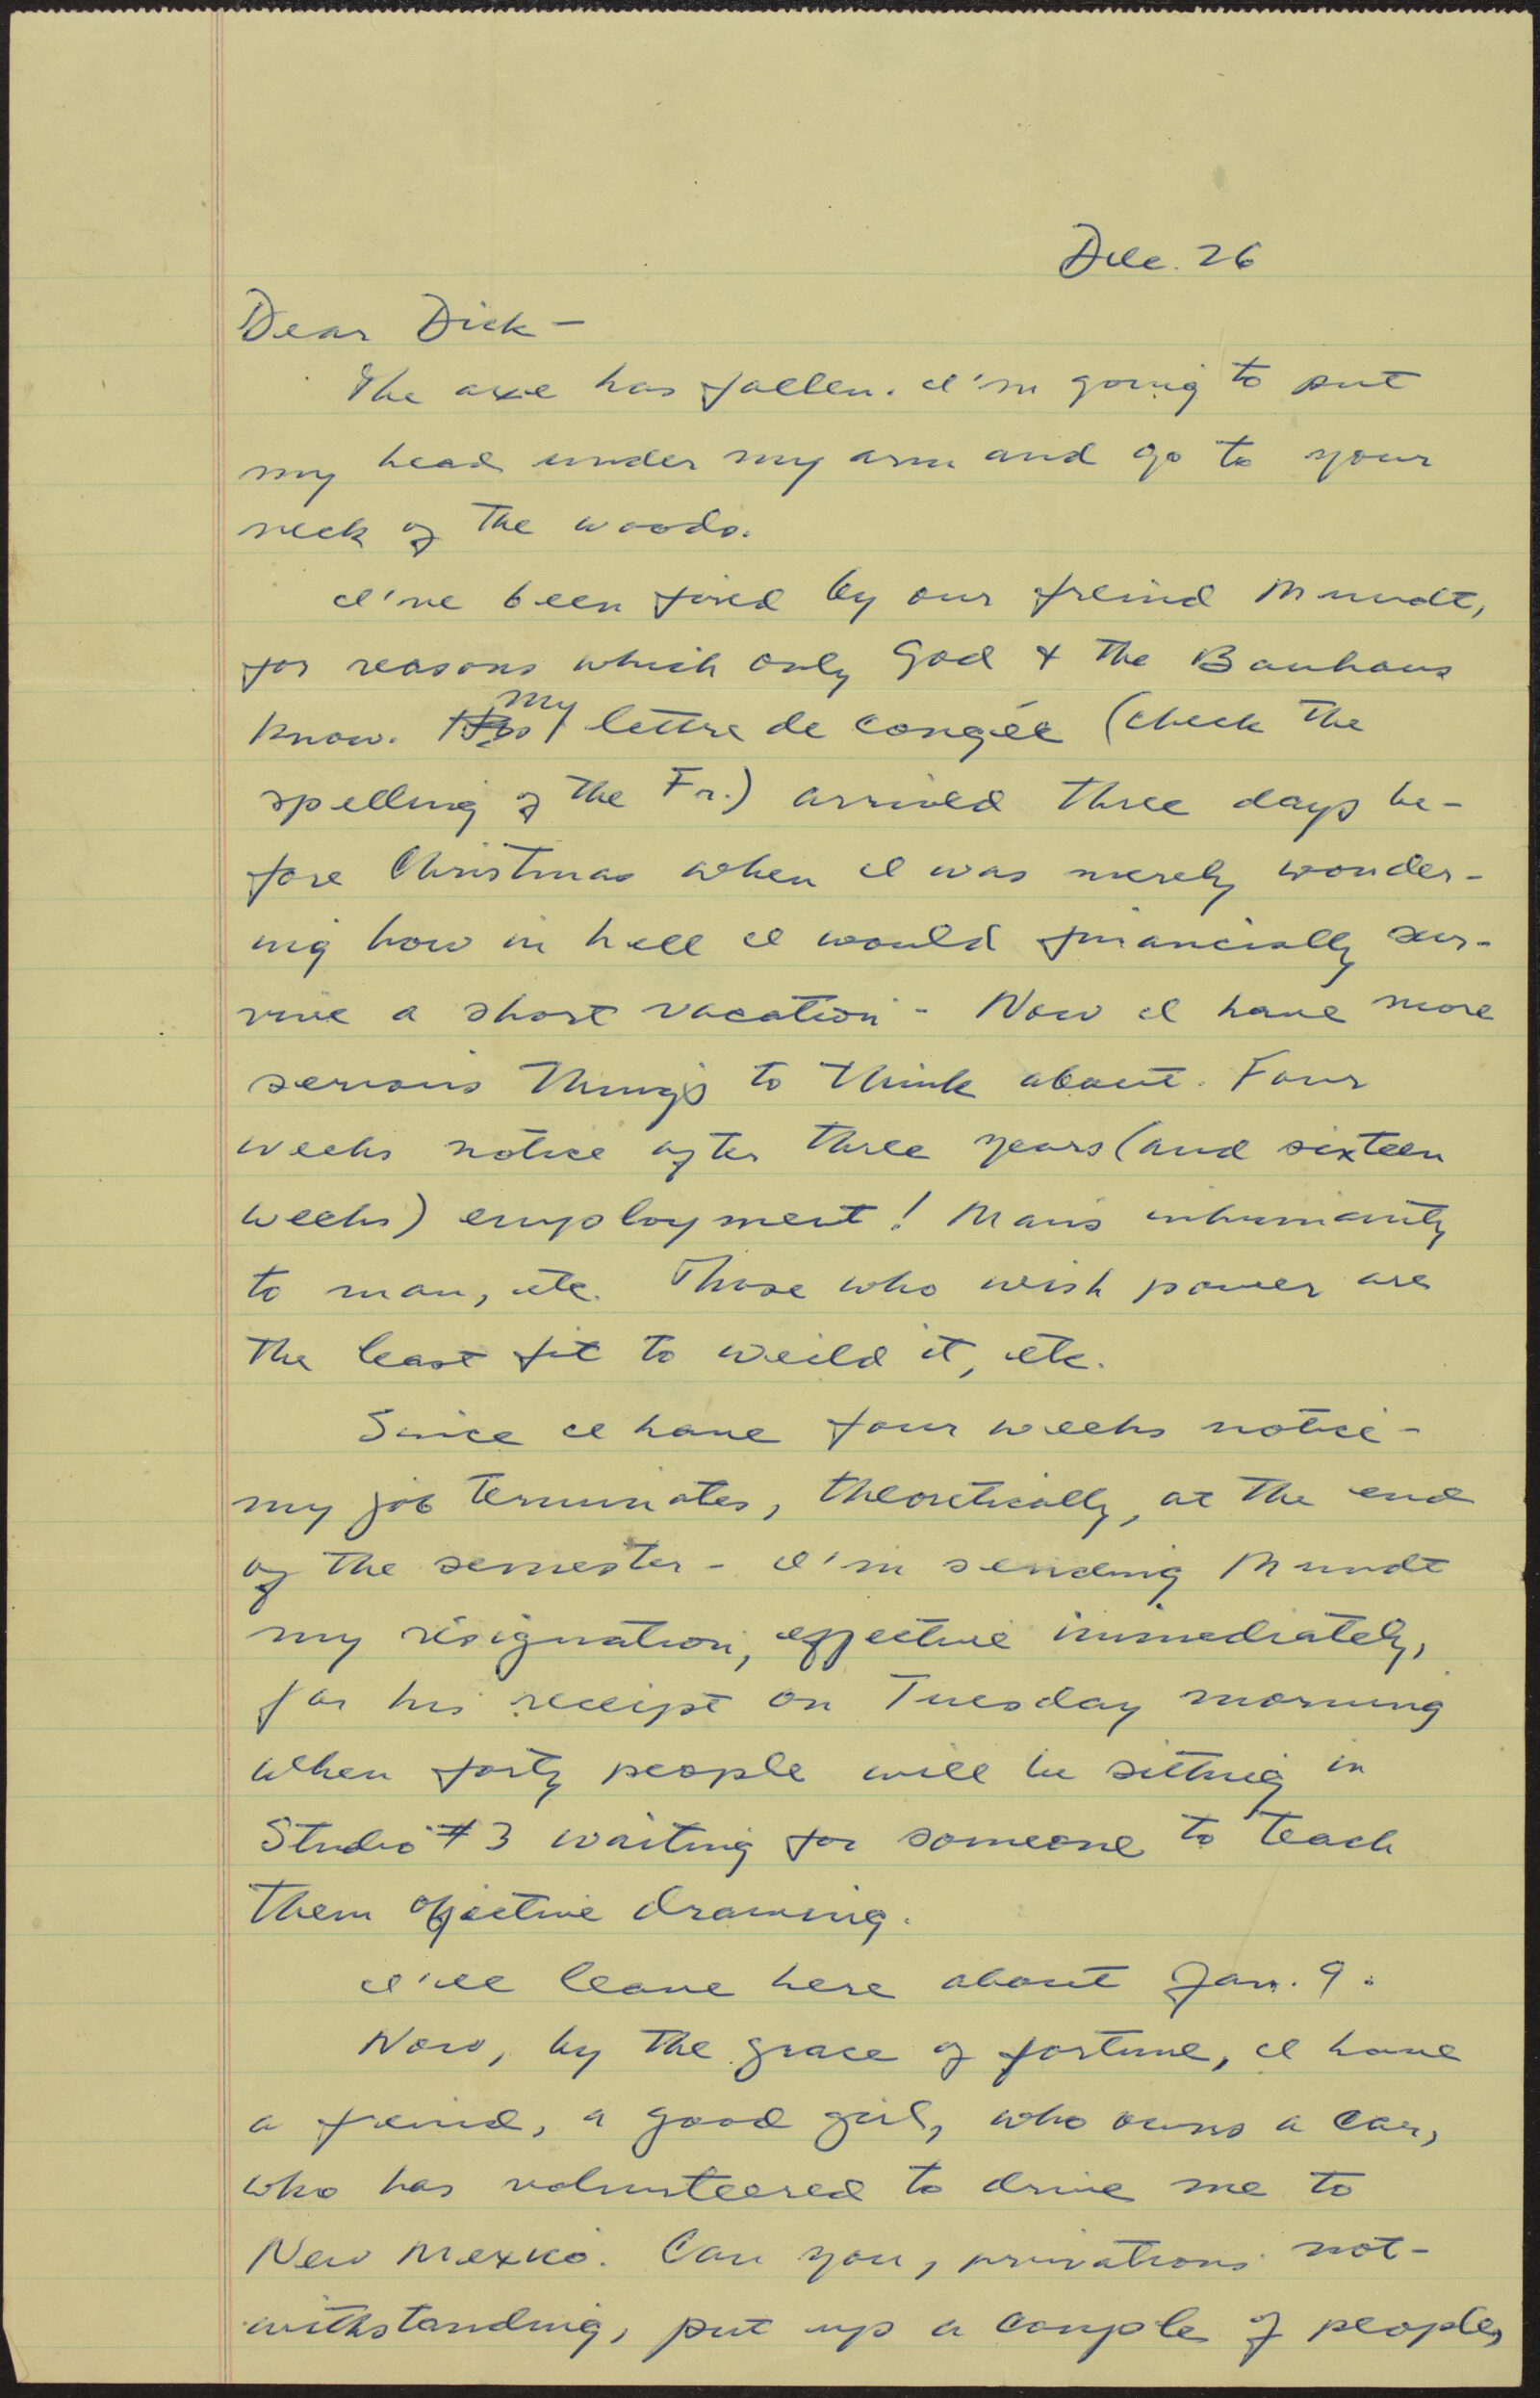 Dec. 26
Dear Dick —
The axe has fallen. I'm going to put
my head under my arm and go to your
neck of the woods.
I've been fired by our freind Mundt,
for reasons which only God & the Bauhaus
know. my lettre de congée (check the
spelling of the Fr.) arrived three days be-
fore Christmas when I was merely wonder-
ing how in hell I would financially sur-
vive a short vacation - Now I have more
serious things to think about. Four
weeks notice after three years (and sixteen
weeks) employment! Man's inhumanity
to man, etc. Those who wish power are
the least fit to weild it, etc.
Since I have four weeks notice -
my job terminates, theoretically, at the end
of the semester - I'm sending Mundt
my resignation, effective immediately,
for his receipt on Tuesday morning
when forty people will be sitting in
Studio #3 waiting for someone to teach
them ojective drawing.
I'll leave here about Jan. 9.
Now, by the grace of fortune, I have
a freind, a good girl, who owns a car,
who has volunteered to drive me to
New Mexico. Can you, privations not-
withstanding, put up a couple of people,